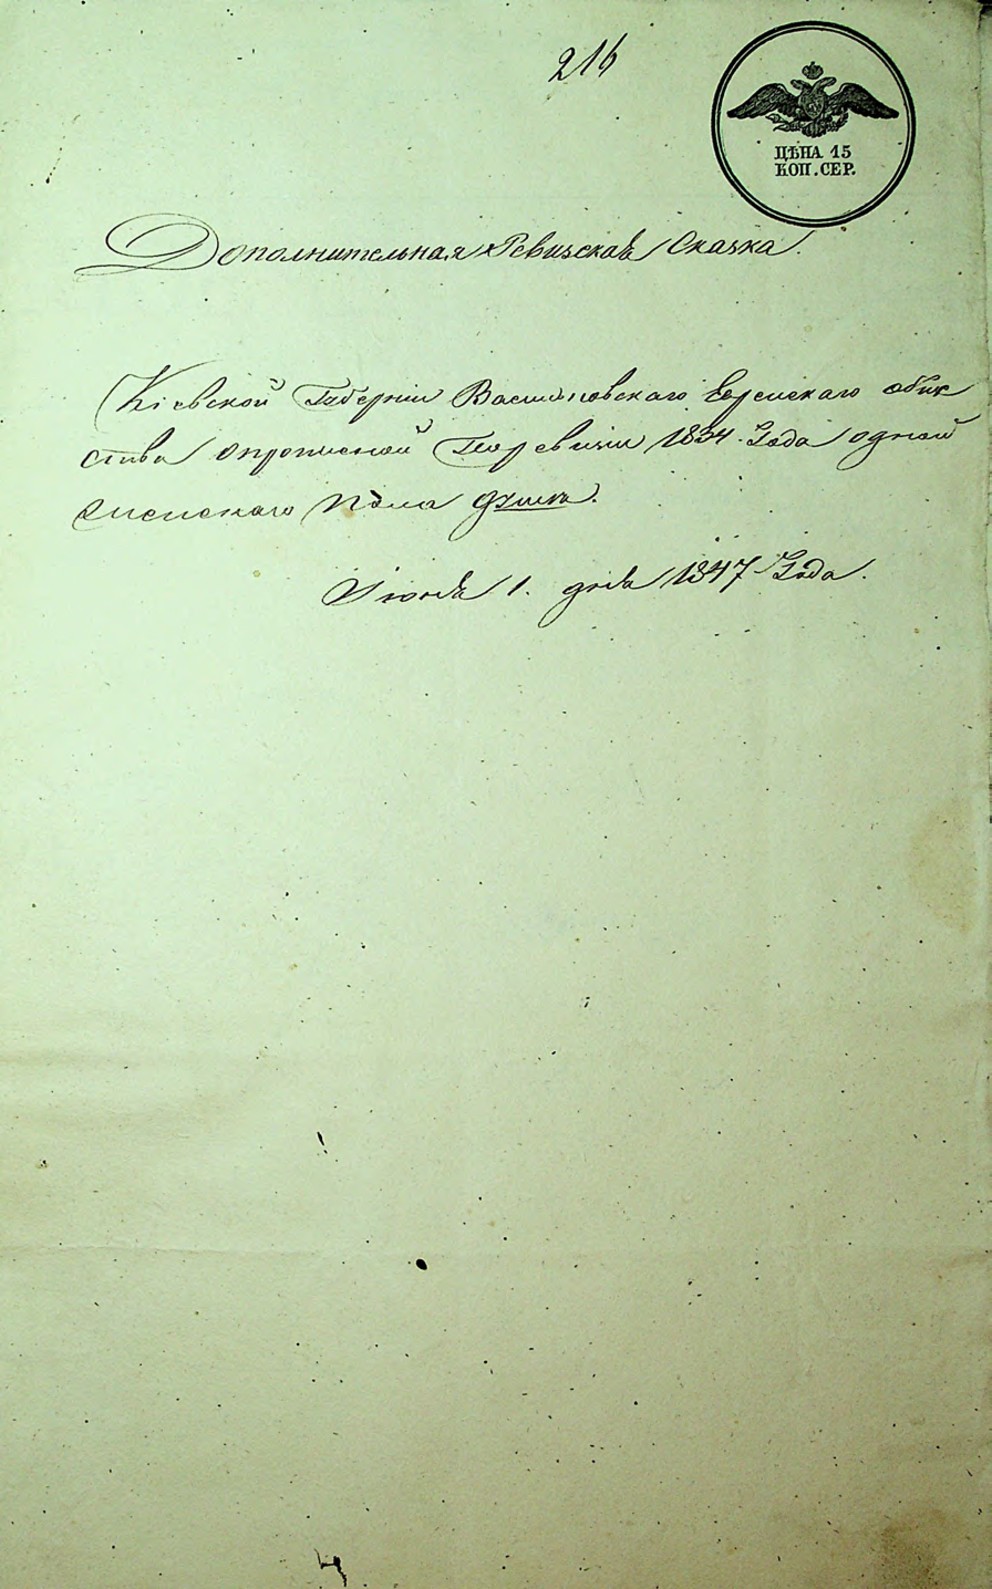 216
ЦѢНА 15
КОП. СЕР.
Дополнительная Ревизская Сказка.
Кіевской Губерніи Васильковскаго Еврейскаго обще
ства о прописной по ревизіи 1834 Года одной
женскаго пола душѣ.
Іюня 1. дня 1847 Года.